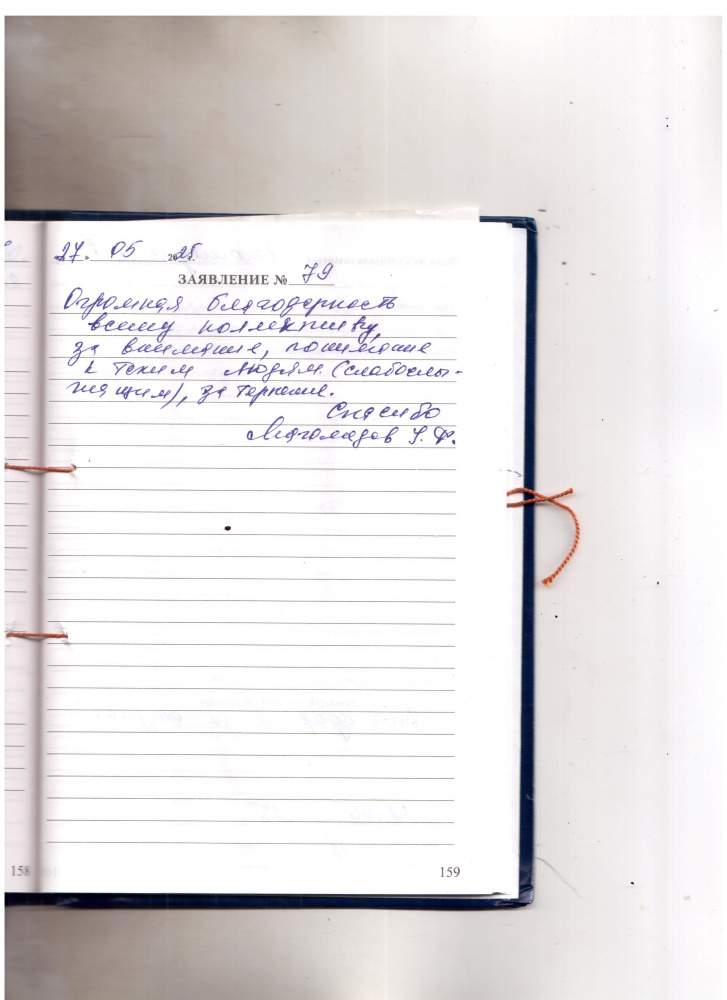 27. 05 2025г.
ЗАЯВЛЕНИЕ № 79
Огромная благодарность
всему коллективу,
за внимание, понимание
к таким людям (слабослы-
шащим), за терпение.
Спасибо
Магомадов У. Ф.
158
159